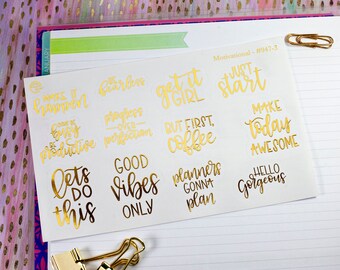 Motivational
make it
happen
fearless
get it
GIRL
JUST
start
busy
productive
progress
over
perfection
BUT FIRST,
Coffee
MAKE
today
AWESOME
let's
DO
this
GOOD
vibes
ONLY
planners
GONNA
plan
HELLO
Gorgeous